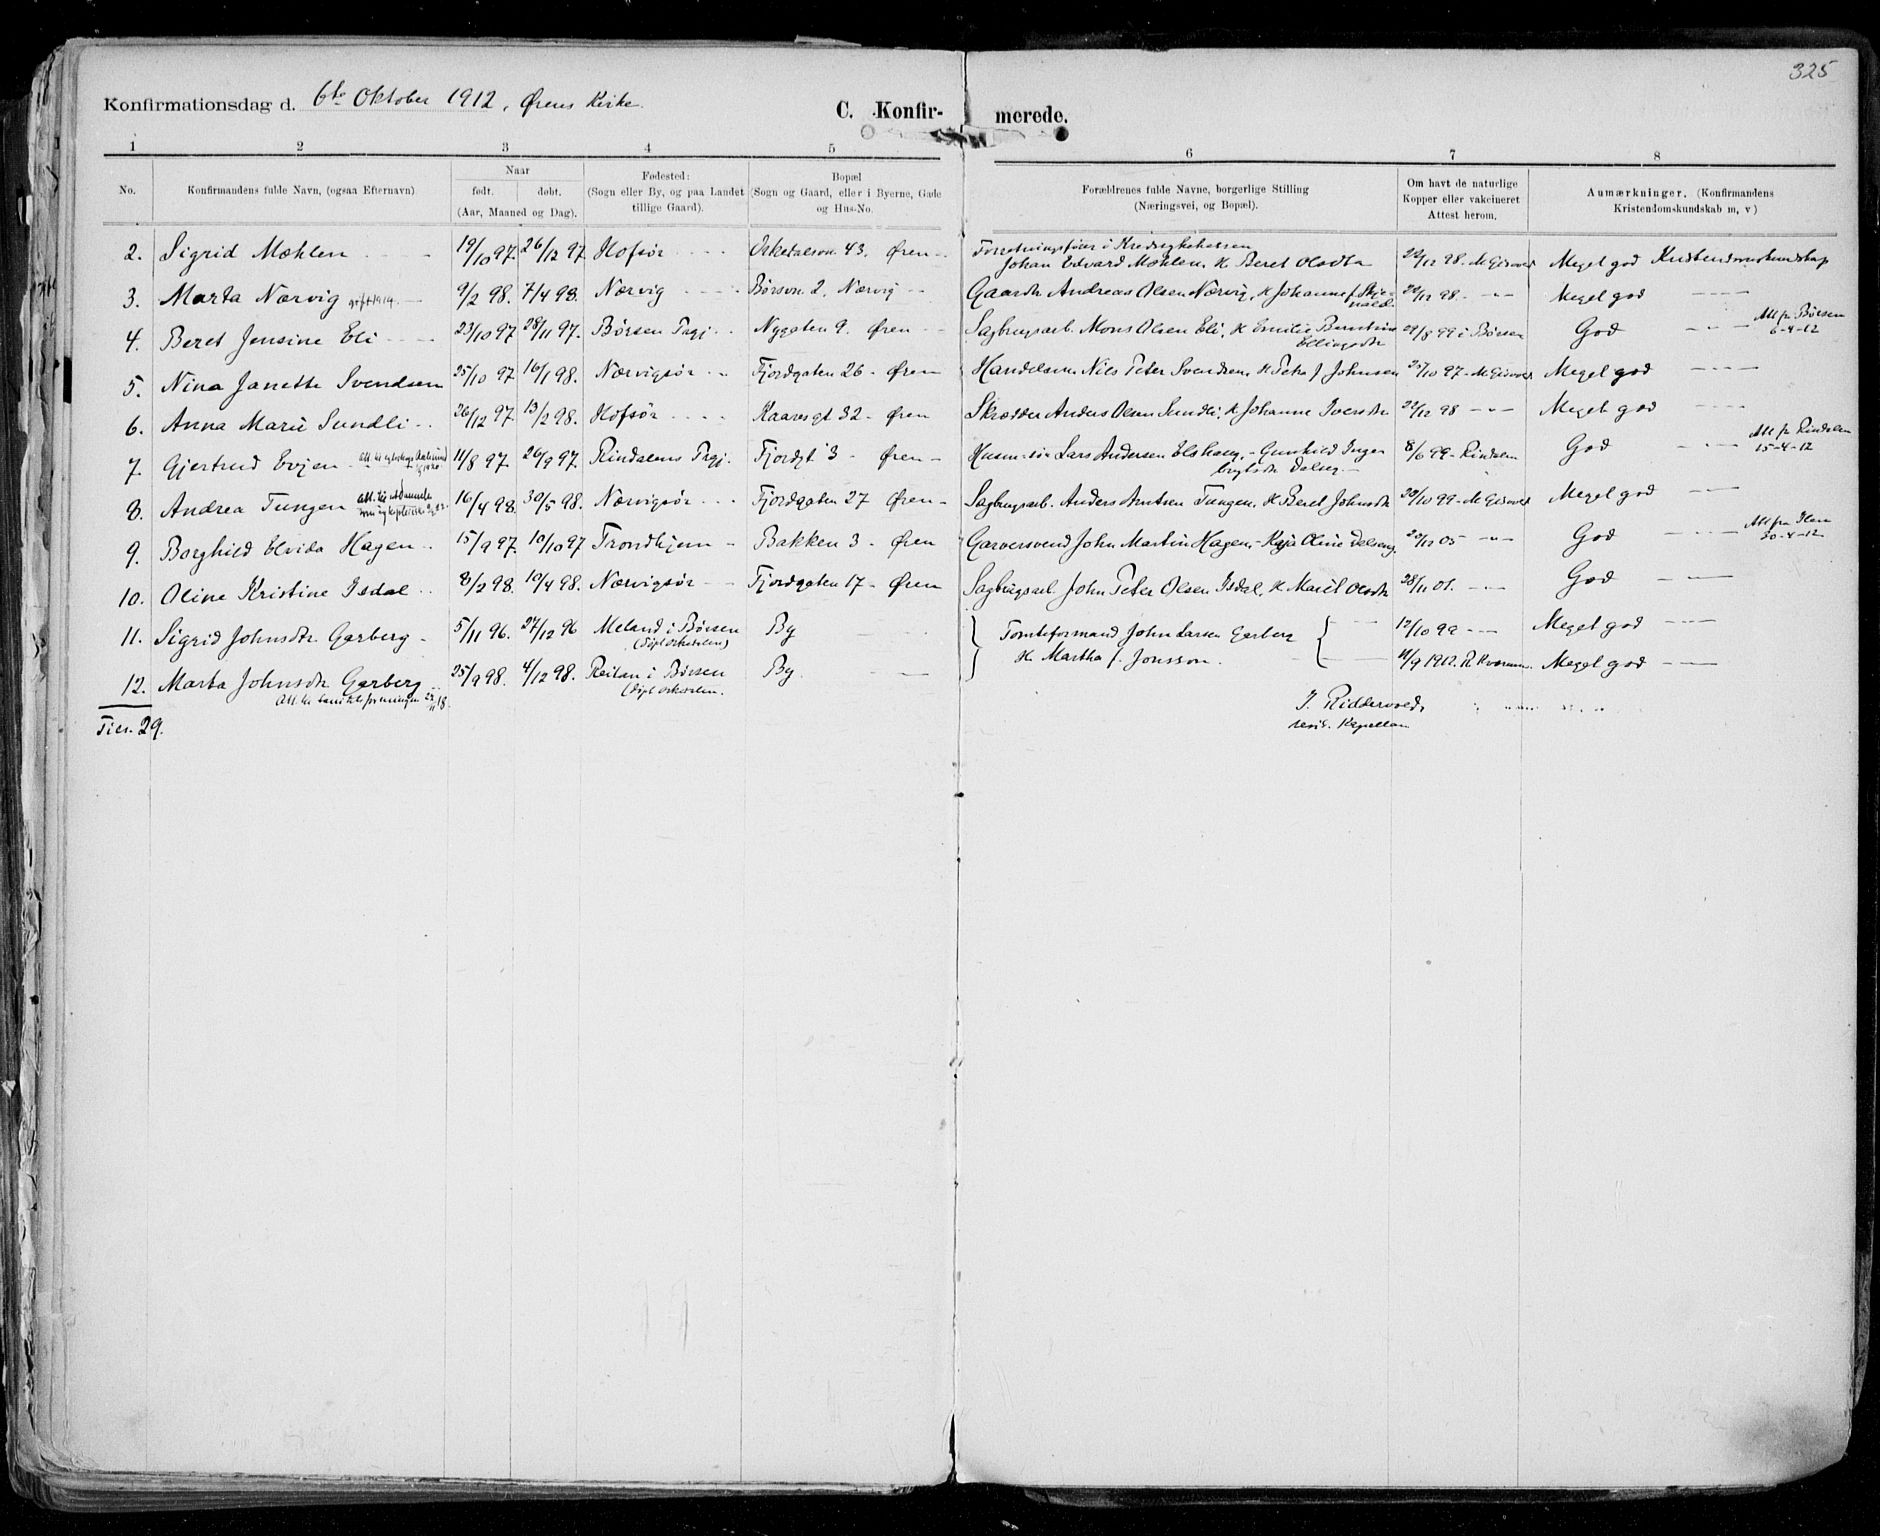 325
Konfirmationsdag d. 6te Oktober 1912, Ørens Kirke.
C. Konfir- merede.
1 2 3 4 5 6 7 8
No. Konfirmandens fulde Navn, (ogsaa Efternavn) Naar født. døbt. (Aar, Maaned og Dag). Fødested: (Sogn eller By, og paa Landet tillige Gaard). Bopæl (Sogn og Gaard, eller i Byerne, Gade og Hus-No. Forældrenes fulde Navne, borgerlige Stilling (Næringsvei, og Bopæl). Om havt de naturlige Kopper eller vakcineret Attest herom. Anmærkninger. (Konfirmandens Kristendomskundskab m, v)
2. Sigrid Mæhlen 19/10 97. 26/12 97 Hofsør 43, Øren Johan Edvard Mæhlen, H. Beret Olsdtr 22/12 98. Meget god Kristendomskundskap
3. Marta Nærvig gift 1919. 9/2 98. 7/4 98. Nærvig Børsvn 2, Nærvig Gaardbr Andreas Olsen Nærvig, H. Johanne f. 22/12 98. - " - Meget god
4. Beret Jensine Eli 23/10 97 28/11 97. Børsen Prgj. Nygaten 9. Øren Sagbrugsarb. Mons Olsen Eli, H. Emilie Ellingsdtr 29/8 99 i Børsen God Att fr Børsen 6-4-12
5. Nina Janette Svendsen 25/10 97 16/1 98. Nærvigsør Fjordgaten 26 - Øren Handelsm. Nils Peter Svendsen, H. Petra f. Johnsen 25/10 97 - Meget god
6. Anna Marie Sundli 26/12 97. 13/2 98. Hofsør Kaaresgt 32 - Øren Skrædder Anders Olsen Sundli, H. Johanne Iversdtr 22/12 98 - " - Meget god
7. Gjertrud Evjen 11/8 97. 26/9 97. Rindalens Prgj. Fjordgt 3 - Øren - Lars Andersen - Gunhild 8/6 99 - Rindalen God Att fr Rindalen 15-4-12
8. Andrea Tungen 16/4 98. 30/5 98. Nærvigsør Fjordgaten 27 Øren - Sagbrugsarb. Anders Arntsen Tungen, H. Beret Johnsdtr 20/10 99 - Meget god
9. Borghild Elvida Hagen 15/9 97. 10/10 97 Trondhjem - Bakken 3 - Øren Garversvend John Martin Hagen, - Kaja Oline 20/12 05 - " - God Att fra Ilen 30-4-12
10. Oline Kristine Isdal 8/2 98. 10/4 98. Nærvigsør Fjordgaten 17 - Øren Sagbrugsarb. John Peter Olsen Isdal, H. Marit Olsdtr 28/11 01. - " - God
11. Sigrid Johnsdtr. Garberg - 5/11 96. 27/12 96 Meland i Børsen (døpt Orkedalen) By Tomteformand John Larsen Garberg 12/10 99 Meget god
12. Marta Johnsdtr Garberg 25/9 98. 4/12 98. Reitan i Børsen (døpt Orkedalen. By. H. Martha f. Jonsson. 11/9 1912. Meget god
Att. til 18.
Tils. 29.
J. Riddervold,
resid. Kapellan